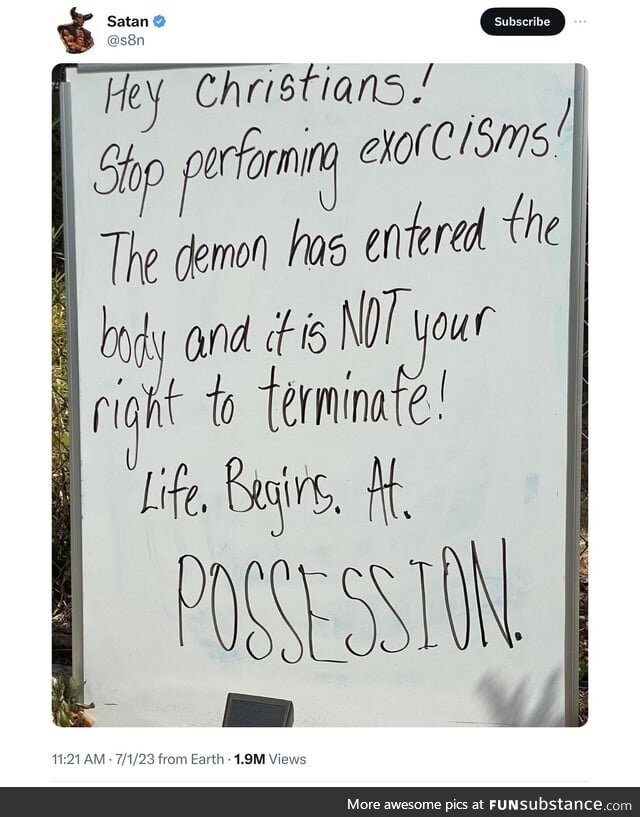 Satan
@s8n
Subscribe
Hey Christians!
Stop performing exorcisms!
The demon has entered the
body and it is NOT your
right to terminate!
Life. Begins. At.
POSSESSION.
11:21 AM · 7/1/23 from Earth · 1.9M Views
More awesome pics at FUNsubstance.com